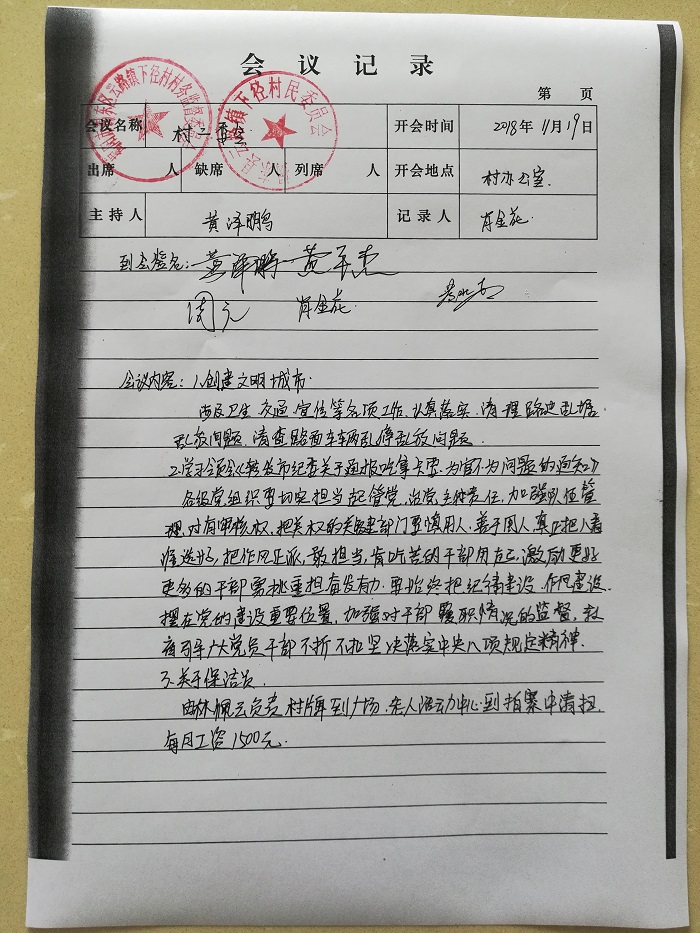 会议记录
第 页
会议名称 村二委会 开会时间 2018年11月19日
出席 人 缺席 人 列席 人 开会地点 村办公室
主持人 黄泽鹏 记录人 肖金花
到会签名: 黄泽鹏
周元 肖金花
会议内容: 1.创建文明城市.
涉及卫生、交通、宣传等各项工作,认真落实,清理路边乱堆
乱放问题,清查路面车辆乱停乱放问题.
2.学习领会《转发市纪委关于通报吃拿卡要、为官不为问题的通知》
各级党组织要切实担当起管党、治党主体责任,加强队伍管
理,对有审核权、把关权的关键部门要慎用人、善于用人,真正把人看
准选好,把作风正派、敢担当、肯吃苦的干部用起,激励更好
更多的干部勇挑重担奋发有为.要始终把纪律建设、作风建设
摆在党的建设重要位置,加强对干部履职情况的监督,教
育引导广大党员干部不折不扣坚决落实中央八项规定精神.
3.关于保洁员.
由林佩云负责村牌到广场、老人活动中心到拍寨中清扫.
每月工资1500元.